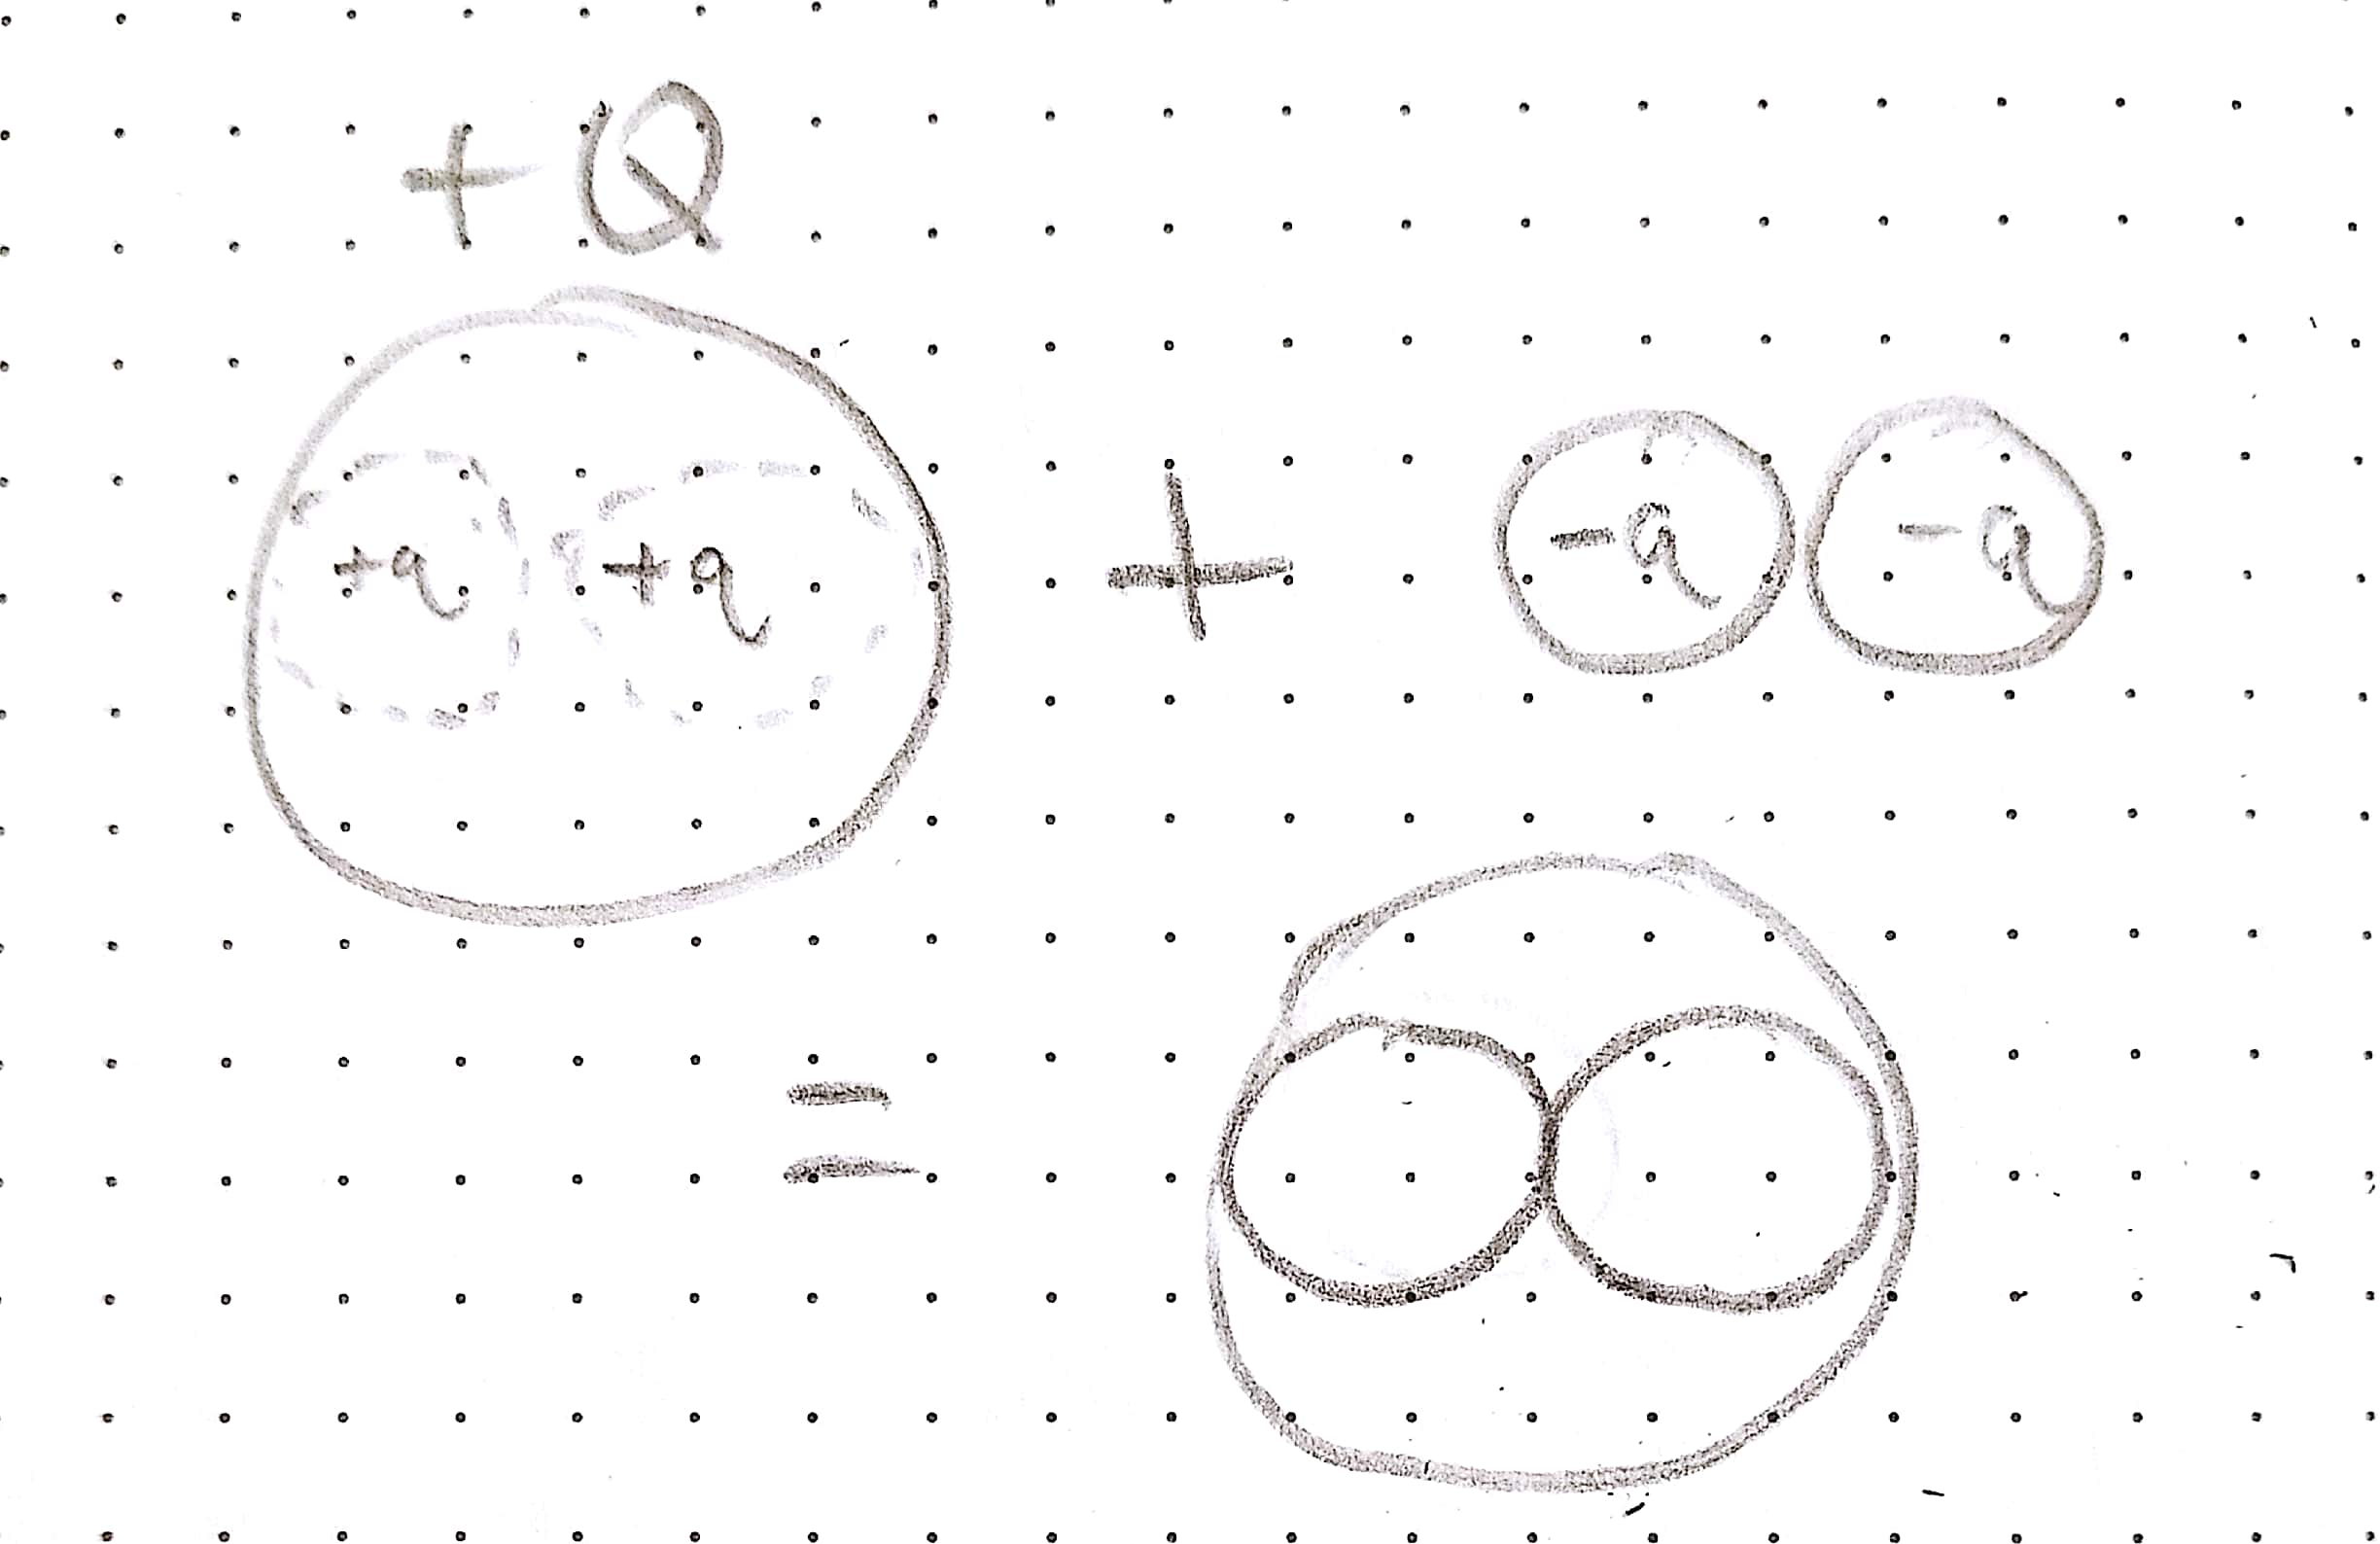 +Q
+q +q + -q -q
=